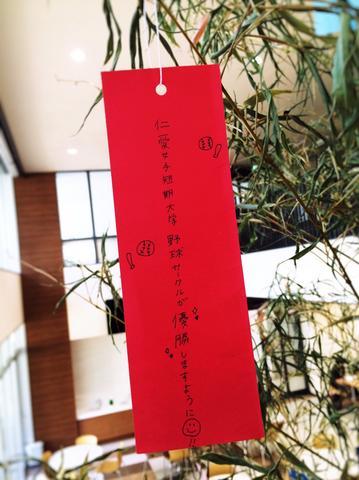 仁愛女子短期大学 野球サークルが優勝しますように!!